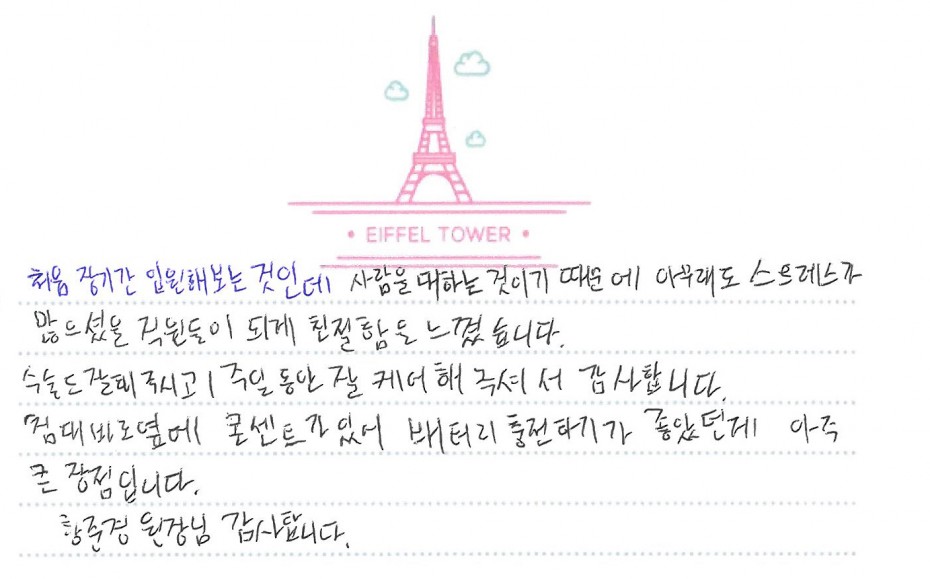 • EIFFEL TOWER •
처음 장기간 입원해보는 것인데 사람을 대하는 것이기 때문에 아무래도 스트레스가
많으셨을 직원들이 되게 친절함을 느꼈습니다.
수술도 잘해주시고 1주일동안 잘 케어해주셔서 감사합니다.
침대바로옆에 콘센트가있어 배터리 충전하기가 좋았던게 아주
큰 장점입니다.
황준경 원장님 감사합니다.